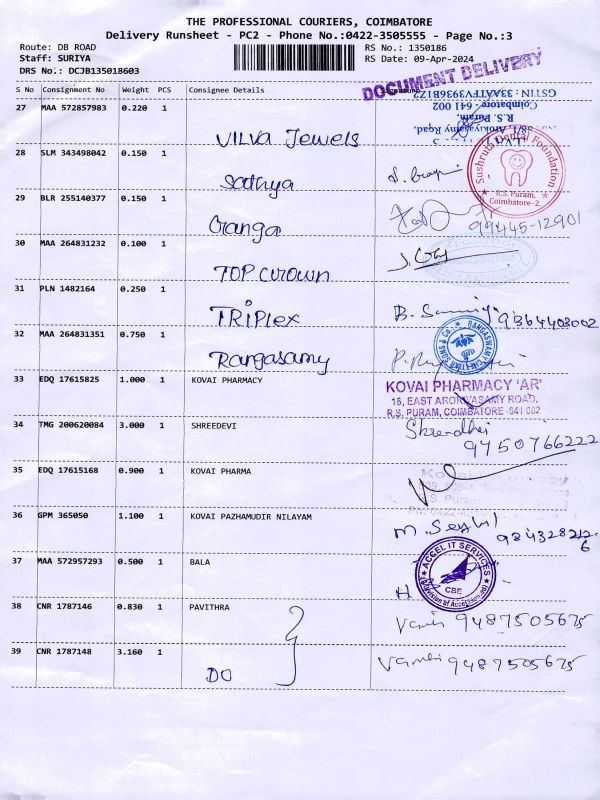 THE PROFESSIONAL COURIERS, COIMBATORE
Delivery Runsheet - PC2 - Phone No.:0422-3505555 - Page No.:3
Route: DB ROAD
RS No.: 1350186
Staff: SURIYA
RS Date: 09-Apr-2024
DRS No.: DCJB135018603
DOCUMENT DELIVERY
S No Consignment No Weight PCS Consignee Details
GSTIN: 33AATFV3936B1Z2
Coimbatore - 641 002
R.S. Puram,
27 MAA 572857983 0.220 1
VILVA Jewels
28 SLM 343498042 0.150 1
Sadhya
Sushruta Dental Foundation
R.S. Puram,
Coimbatore-2.
29 BLR 255140377 0.150 1
Oranga
99445-12901
30 MAA 264831232 0.100 1
TOP Crown
31 PLN 1482164 0.250 1
TRIPlex
9364403002
32 MAA 264831351 0.750 1
Rangasamy
33 EDQ 17615825 1.000 1 KOVAI PHARMACY
KOVAI PHARMACY 'AR'
16, EAST AROKIYASAMY ROAD,
R.S. PURAM, COIMBATORE -641 002
34 TMG 200620084 3.000 1 SHREEDEVI
9750766222
35 EDQ 17615168 0.900 1 KOVAI PHARMA
Kovai Pharmacy
36 GPM 365050 1.100 1 KOVAI PAZHAMUDIR NILAYAM
37 MAA 572957293 0.500 1 BALA
ACCEL IT SERVICES
CBE
38 CNR 1787146 0.830 1 PAVITHRA
9487505675
39 CNR 1787148 3.160 1
DO
9487505675